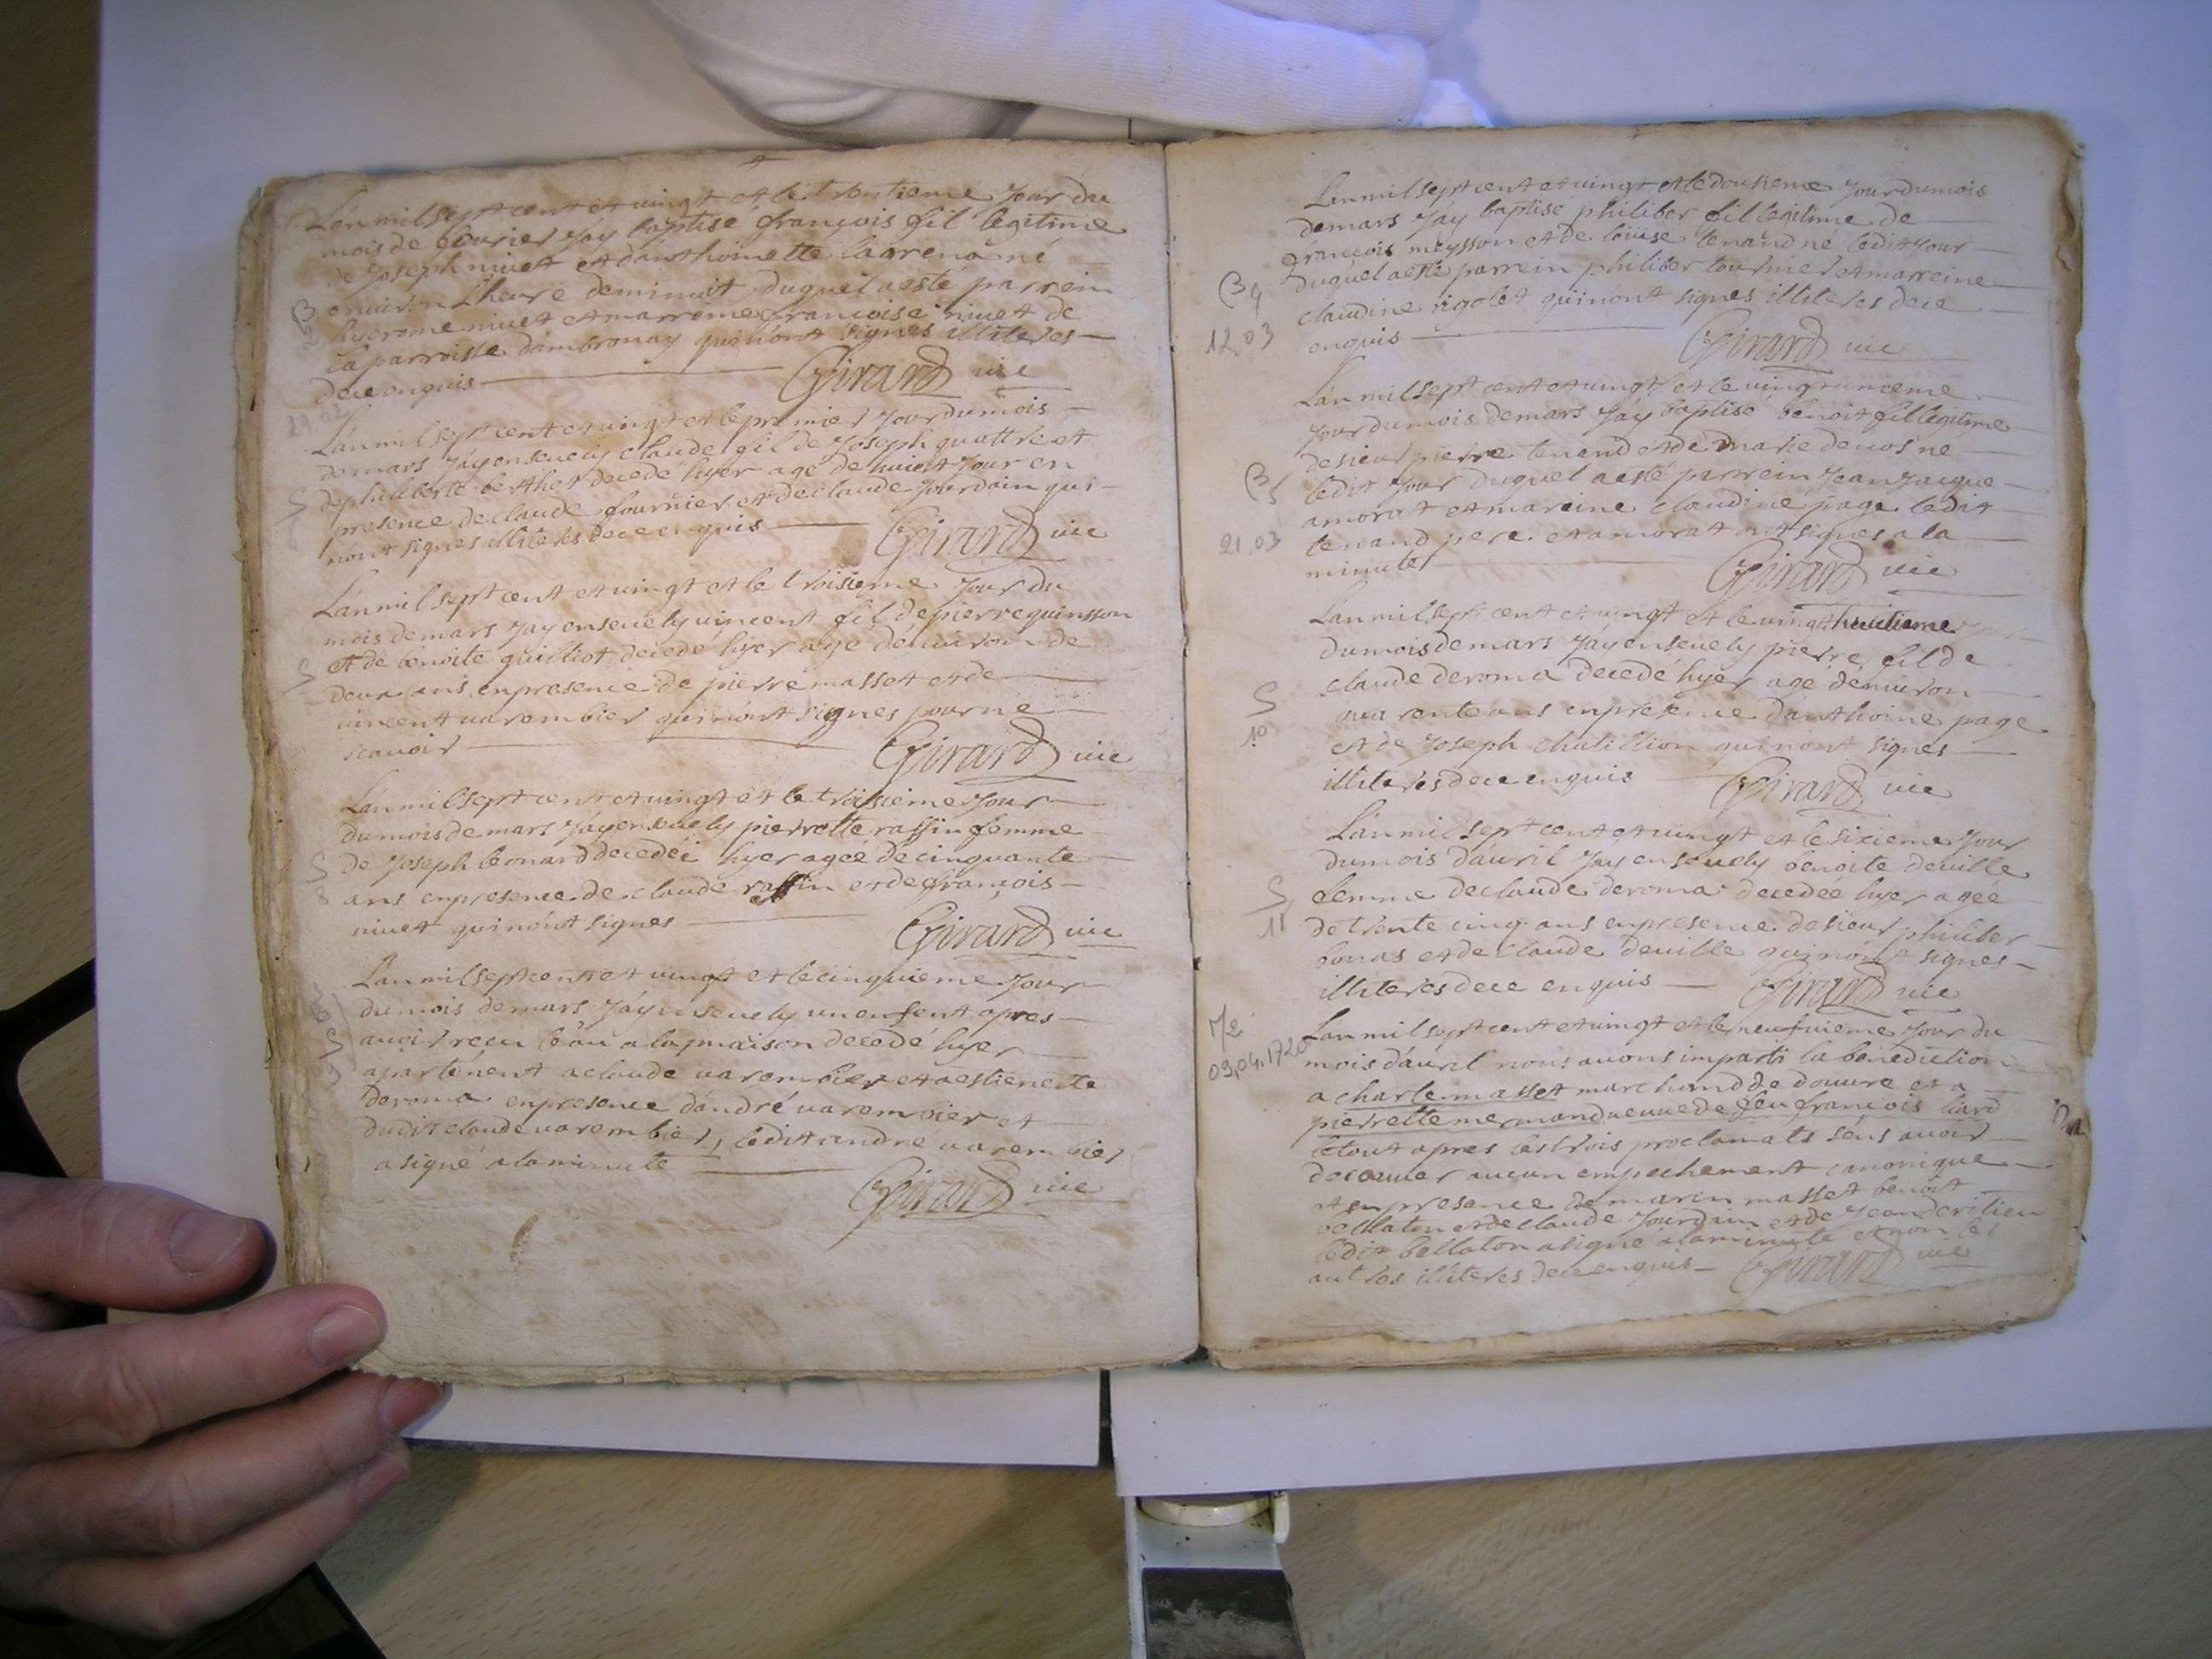 Lan mil sept cent et vingt et le trentieme Jour du
mois de feurier Jay baptisé françois fil legitime
de Joseph niuet et danthoinette la arena né
B enuiron L'heure deminuit duquel a esté parrein
hyerome niuet et marreine francoise niuet de
la parroisse dambronay qui nont signes illiteres
dece enquis Girard vic
Lan mil sept cent et vingt et le premier Jour du mois
de mars Jay enseuely claude fil de Joseph quattre et
S de philiberte berthet decedé hyer agé de huict Jour en
presence de claude fournier et de claude Jourdain qui
nont signes illiteres dece enquis Girard vic
Lan mil sept cent et vingt et le troisieme Jour du
mois de mars Jay enseuely vincent fil de pierre quinsson
S et de benoite guilliot decedé hyer agé denuiron de
deux ans en presence de pierre masset et de
vincent varembier qui nont signes pour ne
scauoir Girard vic
Lan mil sept cent et vingt et le troisieme Jour
du mois de mars Jay enseuely pierrette raffin femme
S de Joseph leonard decedée hyer agée de cinquante
8 ans en presence de claude raffin et de françois
niuet qui nont signes Girard vic
Lan mil sept cent et vingt et le cinquieme Jour
du mois de mars Jay enseuely un enfent apres
S auoir receu l'eau a la maison decedé hyer
9 apartenent a claude varembier et a estienette
deroma en presence dandré varembier et
dudit claude varembier, ledit andre varembier
a signé a la minute
Girard vic
Lan mil sept cent et vingt et le dousieme Jour du mois
de mars Jay baptisé philiber fil legitime de
françois meysson et de loüise tenand né ledit Jour
B4 duquel a esté parrein philiber tournier et marreine
claudine rigolet qui nont signes illiteres dece
12.03 enquis Girard vic
Lan mil sept cent et vingt et le vingt unieme
Jour du mois de mars Jay baptisé benoit fil legitime
de sieur pierre tenand et de marie deuos né
B5 ledit Jour duquel a esté parrein Jean Jacque
amorat et mareine claudine page ledit
21.03 tenand pere et amorat ont signes a la
minute Girard vic
Lan mil sept cent et vingt et le vingt huitieme Jour
du mois de mars Jay enseuely pierre fil de
claude deroma decedé hyer agé denuiron
S quarente ans en presence danthoine page
10 et de Joseph chatillion qui nont signes
illiteres dece enquis Girard vic
Lan mil sept cent et vingt et le sixieme Jour
du mois dauril Jay enseuely benoite deuille
S femme de claude deroma decedée hyer agée
11 de trente cinq ans en presence de sieur philiber
bonas et de claude deuille qui nont signes
illiteres dece enquis Girard vic
Me Lan mil sept cent et vingt et le neufuieme Jour du
09.04.1720 mois dauril nous auons imparti la benediction
a charle masset marchand de douure et a
pierrette mermand veuue de feu francois liard
le tout apres les trois proclamats sens auoir
decouuer aucun empechement canonique
et en presence de marin masset benoit
bellaton et de claude Jourdain et de
ledit bellaton a signe a la minute et non les
autres illiteres dece enquis Girard vic